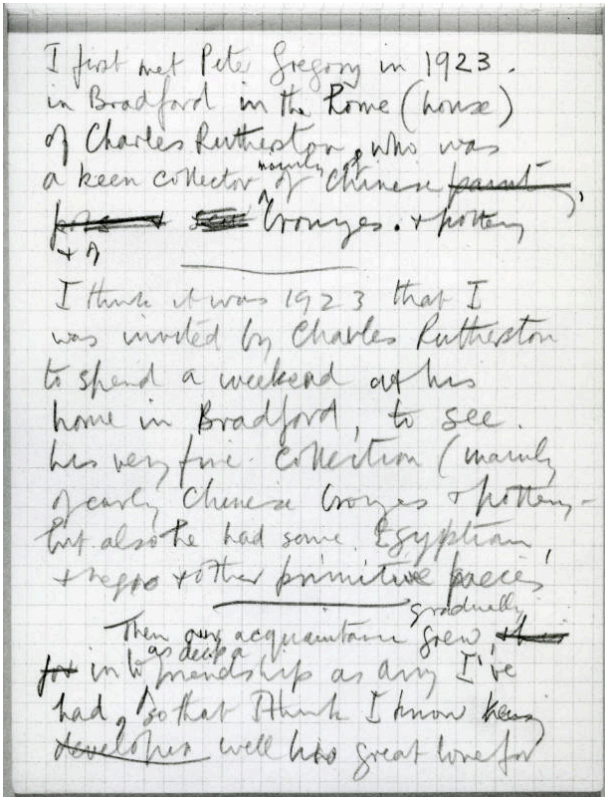 I first met Peter Gregory in 1923.
in Bradford in the home (house)
of Charles Rutherston, who was
a keen collector mainly of of Chinese paint,
bronzes. + pottery
+ of
I think it was 1923 that I
was invited by Charles Rutherston
to spend a weekend at his
home in Bradford, to see.
his very fine collection (mainly
of early Chinese bronzes + pottery -
but also he had some Egyptian,
+ negro + other primitive pieces
gradually
Then our acquaintance grew,
for into as deep a friendship as any I've
had, so that I think I know
developed well his great love for